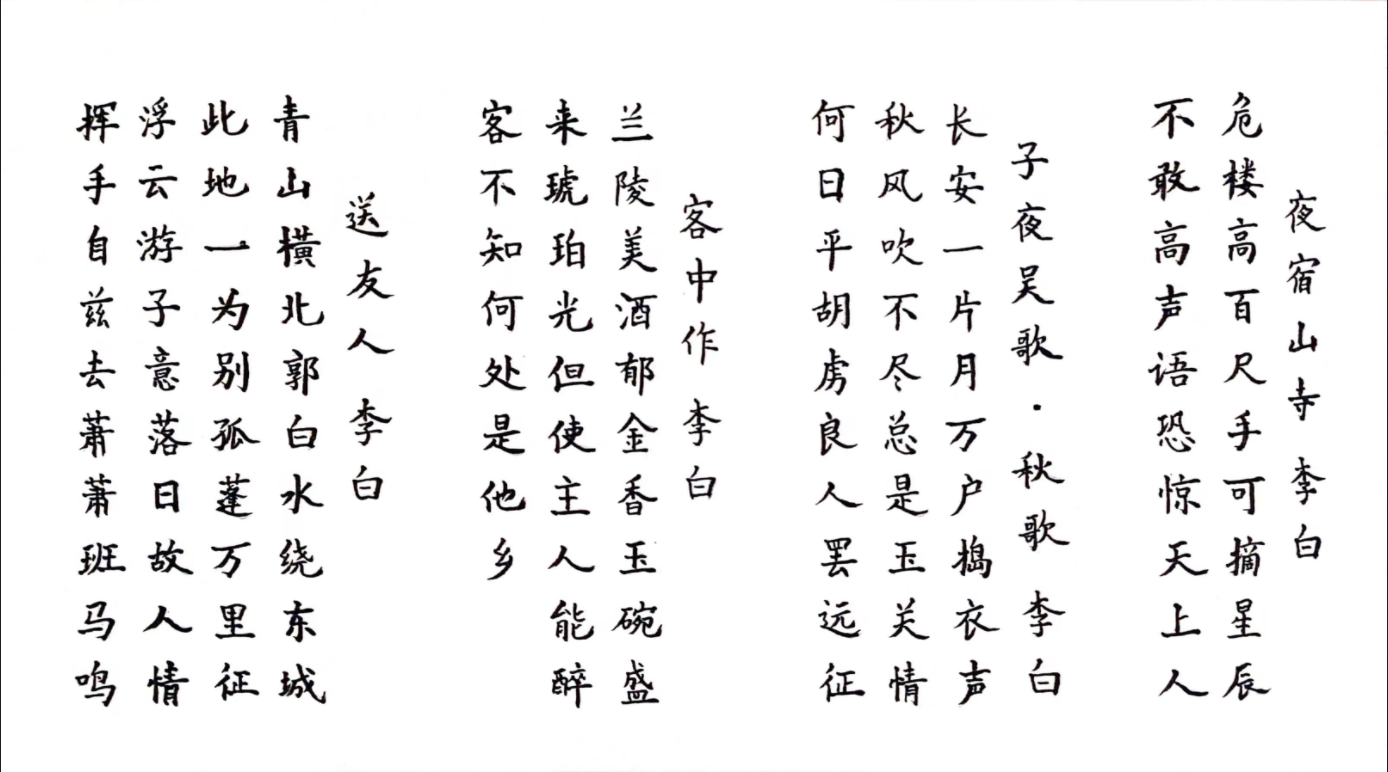 夜宿山寺 李白
危楼高百尺手可摘星辰
不敢高声语恐惊天上人
子夜吴歌·秋歌 李白
长安一片月万户捣衣声
秋风吹不尽总是玉关情
何日平胡虏良人罢远征
客中作 李白
兰陵美酒郁金香玉碗盛
来琥珀光但使主人能醉
客不知何处是他乡
送友人 李白
青山横北郭白水绕东城
此地一为别孤蓬万里征
浮云游子意落日故人情
挥手自兹去萧萧班马鸣